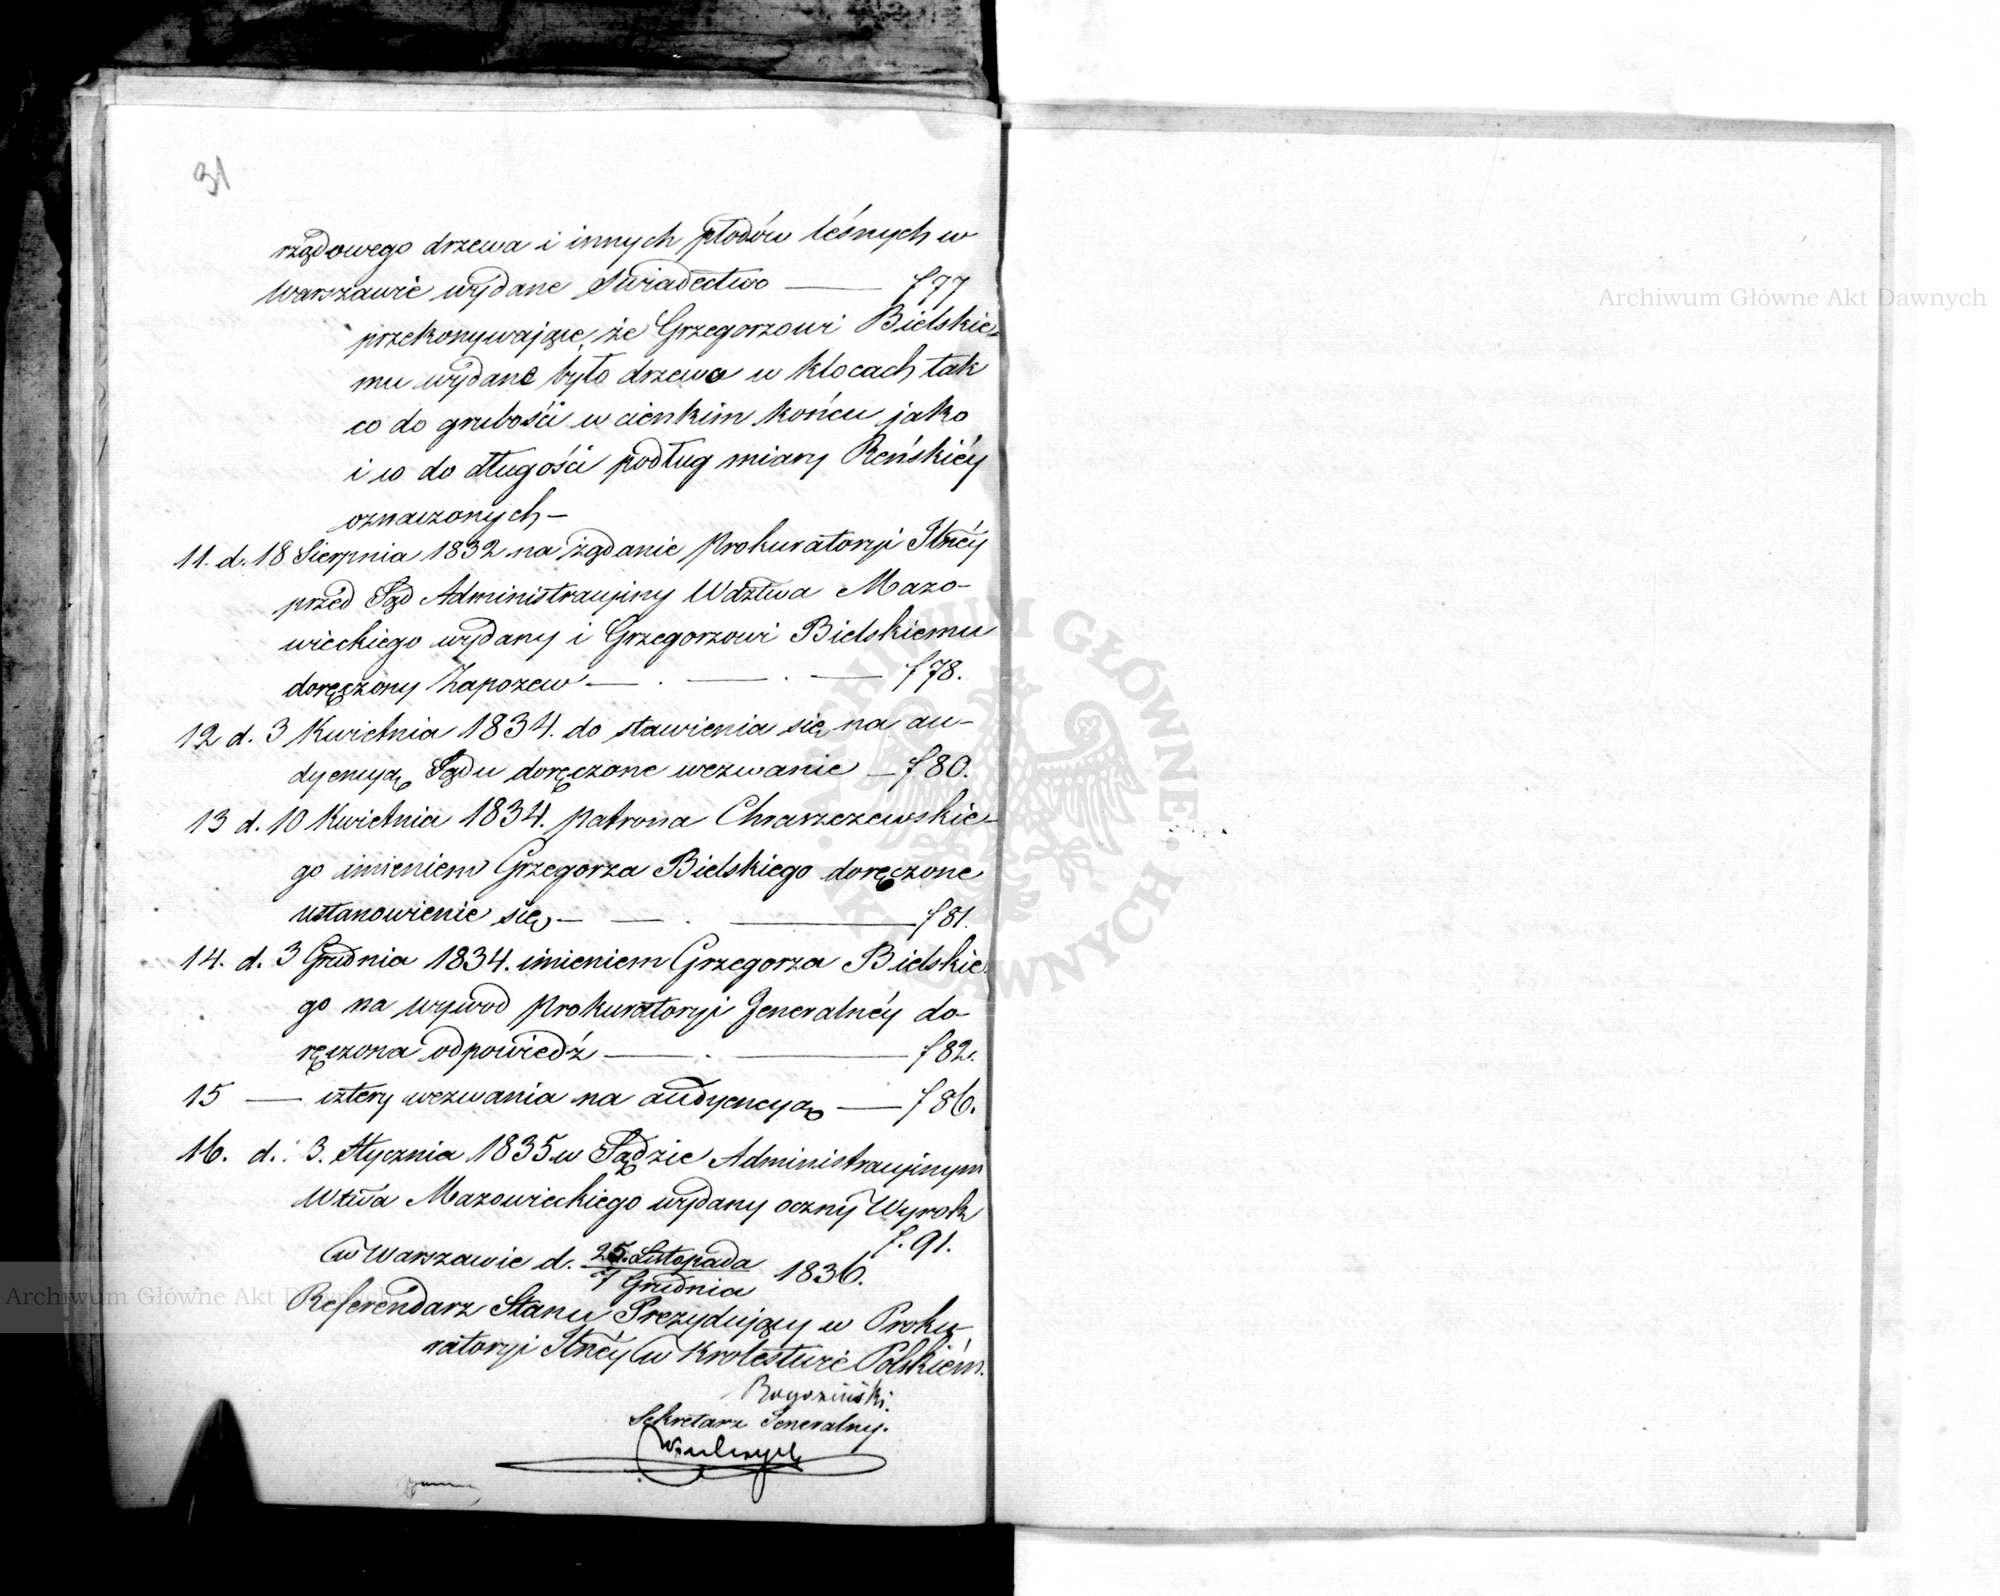 31
rządowego drzewa i innych płodów leśnych w
Warszawie wydane Świadectwo — f 77
przekonywające, że Grzegorzowi Bielskie-
mu wydane było drzewo w klocach tak
co do grubości w cienkim końcu jako
i co do długości podług miary Reńskiéy
oznaczonych —
11. d. 18 Sierpnia 1832 na żądanie Prokuratoryi Jlnéy
przed Sąd Administracyiny Wdztwa Mazo-
wieckiego wydany i Grzegorzowi Bielskiemu
doręczony Zapozew — . — . — f 78.
12 d. 3 Kwietnia 1834. do stawienia się na au-
dyencyą Sądu doręczone wezwanie — f 80.
13 d. 10 Kwietnia 1834. Patrona Chraszczewskie-
go imieniem Grzegorza Bielskiego doręczone
ustanowienie się — — . — f 81.
14. d. 3 Grudnia 1834. imieniem Grzegorza Bielskie
go na wywod Prokuratoryi Jeneralnéy do-
ręczona odpowiedź — . — f 82.
15 — cztery wezwania na audyencyą — f 86.
16. d. 3. Stycznia 1835 w Sądzie Administracyinym
Wtwa Mazowieckiego wydany oczny Wyrok
f. 91.
w Warszawie d. 25. Listopada
7 Grudnia 1836.
Referendarz Stanu Prezydujący w Proku
ratoryi Jlnéy w Krolestwie Polskiém.
Sekretarz Jeneralny.
Archiwum Główne Akt Dawnych
Archiwum Główne Akt Dawnych
ARCHIWUM GŁÓWNE AKT DAWNYCH